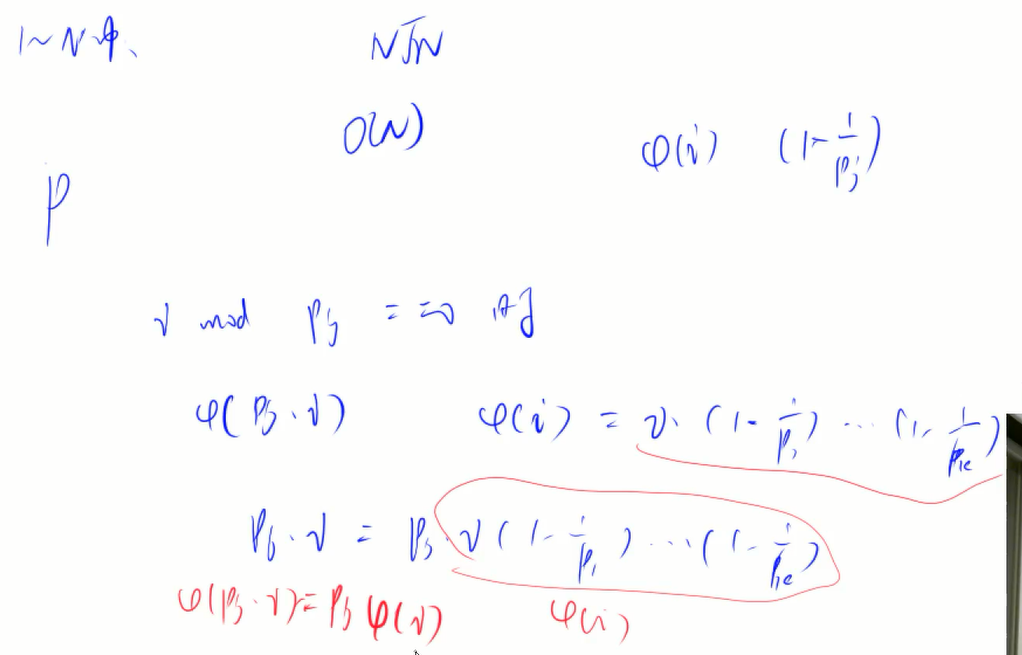 1~N中、 N√N
O(N)
φ(i) (1-1/pj)
P
i mod pj == 0 时
φ(pj·i) φ(i) = i·(1-1/p1)...(1-1/pk)
pj·i = pj·i(1-1/p1)...(1-1/pk)
φ(pj·i)=pjφ(i) φ(i)